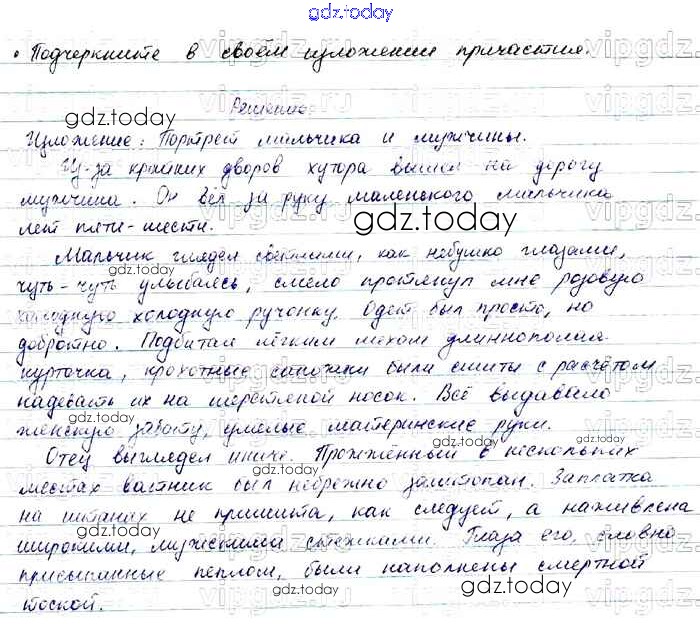 gdz.today
• Подчеркните в своём изложении причастия.
Решение:
gdz.today
Изложение: Портрет мальчика и мужчины.
Из-за крайних дворов хутора вышел на дорогу
мужчина. Он вёл за руку маленького мальчика
лет пяти-шести.
gdz.today
Мальчик глядел светлыми, как небушко глазами,
gdz.today
чуть-чуть улыбаясь, смело протянул мне розовую
холодную ручонку. Одет был просто, но
добротно. Подбитая лёгким мехом длиннополая
курточка, крохотные сапожки были сшиты с расчётом
надевать их на шерстяной носок. Всё выдавало
gdz.today
женскую заботу, умелые материнские руки.
gdz.today
Отец выглядел иначе. Прожжённый в нескольких
gdz.today
местах ватник был небрежно заштопан. Заплатка
на штанах не пришита, как следует, а наживлена
gdz.today
широкими, мужскими стежками. Глаза его, словно
присыпанные пеплом, были наполнены смертной
gdz.today
тоской.